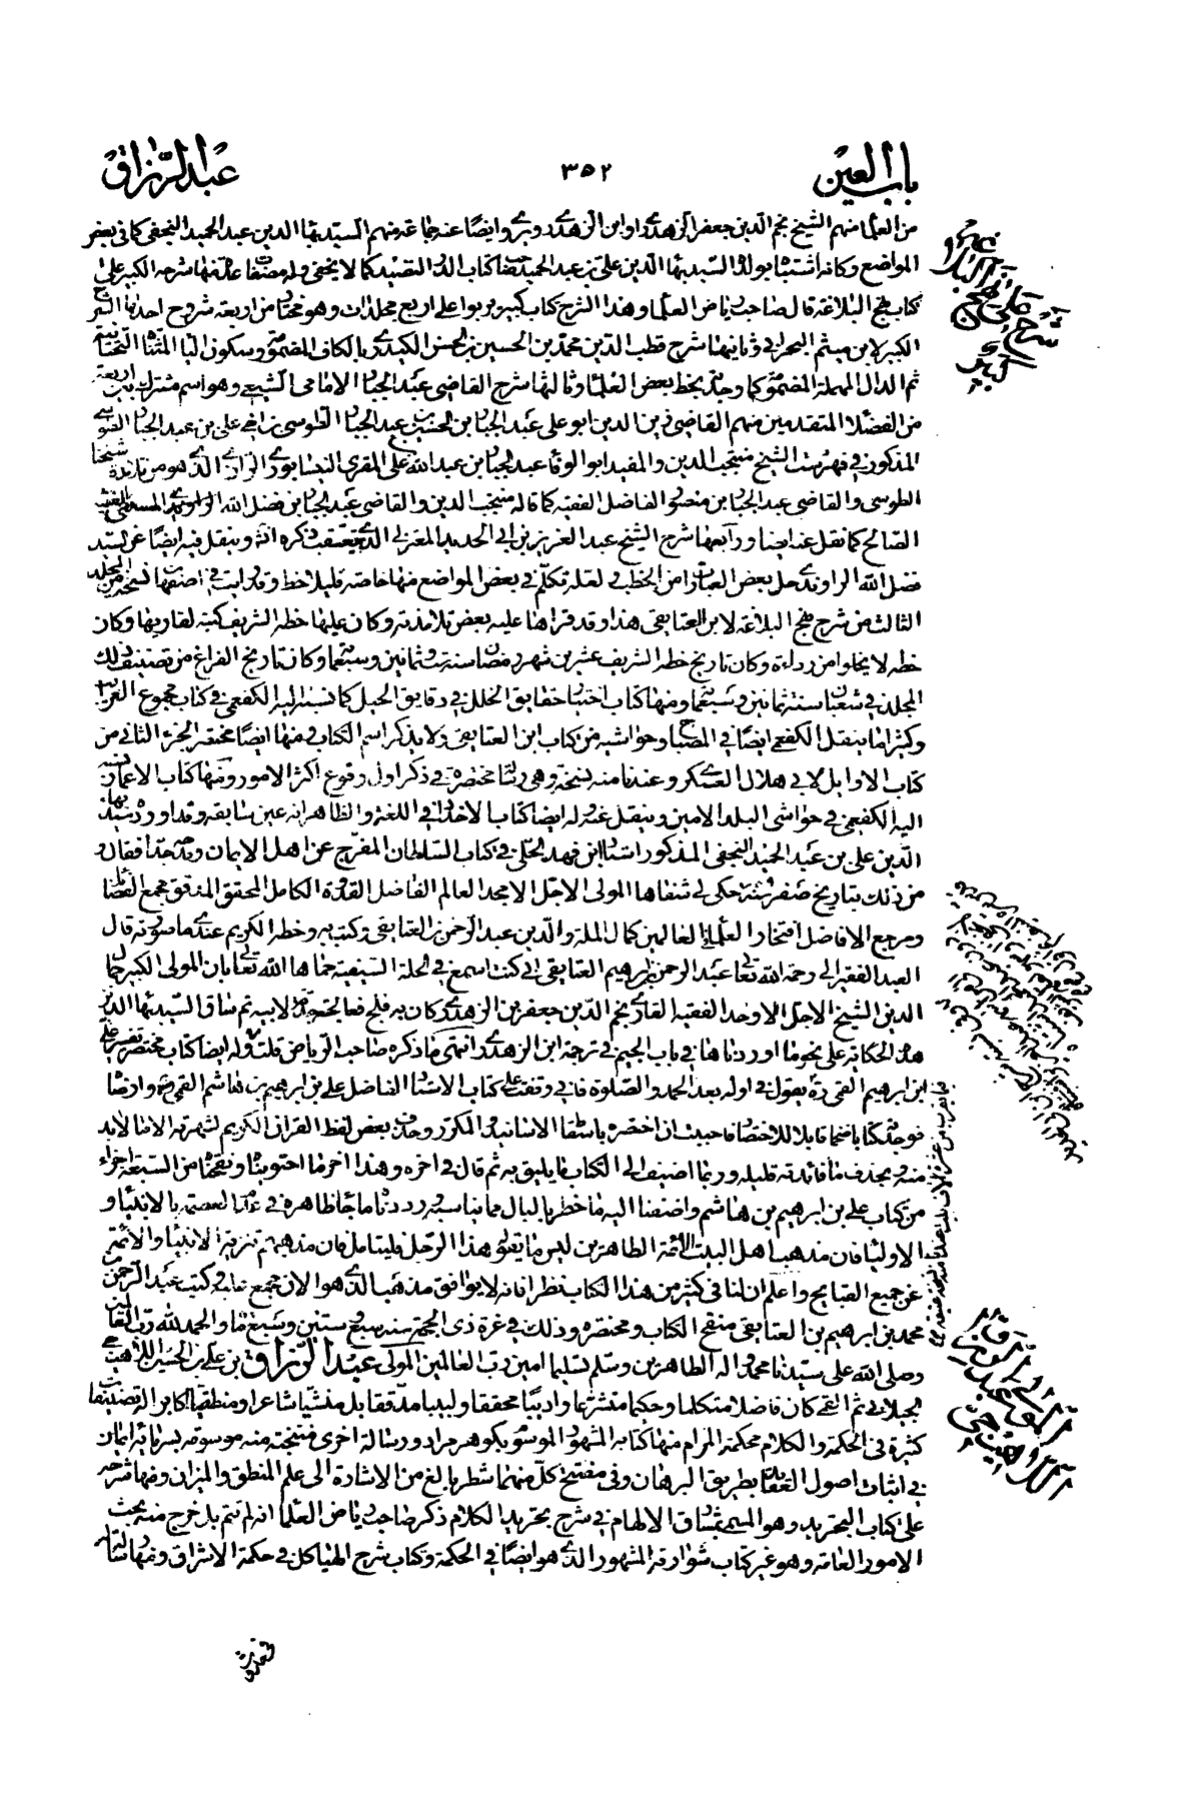 باب العين
٣٥٢
عبد الرزاق
من العلماء منهم الشيخ نجم الدين جعفر الزهدري او ابن الزهدري ويروى ايضا عنه جماعة منهم السيد بهاء الدين عبد الحميد النجفي كما في بعض
المواضع وكانه اشتباه بولده السيد بهاء الدين علي بن عبد الحميد كتاب الدر النضيد كما لا يخفى وله مصنفات عدة منها شرحه الكبير على
كتاب نهج البلاغة قال صاحب رياض العلماء وهذا الشرح كتاب كبير يربو على اربع مجلدات وهو مختار من اربعة شروح احدها الشرح
الكبير لابن ميثم البحراني وثانيها شرح قطب الدين محمد بن الحسين بن الحسن الكيدري بالكاف المضمومة وسكون الياء المثناة التحتانية
ثم الدال المهملة المضمومة كما وجد بخط بعض العلماء وثالثها شرح القاضي عبد الجبار الامامي الشيعي وهو اسم مشترك بين اربعة
من الفضلاء المتقدمين منهم القاضي زين الدين ابو علي عبد الجبار بن الحسين بن عبد الجبار الطوسي بن اخي علي بن عبد الجبار الطوسي
المذكور في فهرست الشيخ منتجب الدين والمفيد ابو الوفا عبد الجبار بن عبد الله بن علي المقري النيسابوري الرازي الذي هو من تلامذة شيخنا
الطوسي والقاضي عبد الجبار بن منصور الفاضل الفقيه كما قاله منتجب الدين والقاضي عبد الجبار بن فضل الله
الصالح كما نقل عنه ايضا ورابعها شرح الشيخ عبد العزيز بن ابي الحديد المعتزلي الذي ذكره انه وينقل فيه ايضا عن السيد
فضل الله الراوندي حل بعض العبارات من الخطب في لعله تكلم في بعض المواضع منها خاصة قليلا خط وقد رايت في اصفهان نسخة من المجلد
الثالث من شرح نهج البلاغة لابن العتايقي هذا وقد قراها عليه بعض تلامذته وكان عليها خطه الشريف كتبه لقاريها وكان
خطه لا يخلوا من رداءة وكان تاريخ خطه الشريف عشرين شهر رمضان سنة ست وثمانين وسبعمائة وكان تاريخ الفراغ من تصنيف ذلك
المجلد في شعبان سنة ثمانين وسبعمائة ومنها كتاب اختيار حقايق الخلل في دقايق الحيل كما نسبه اليه الكفعمي في كتاب مجموع الغرايب
وكثيرا ما ينقل الكفعمي ايضا في المصباح وحواشيه من كتاب ابن العتايقي ولا يذكر اسم الكتاب منها ايضا مختصر الجزء الثاني من
كتاب الاوايل لابي هلال العسكري وعندنا منه نسخة وهي رسالة مختصرة في ذكر اول وقوع اكثر الامور ومنها كتاب الاعمار نسبه
اليه الكفعمي في حواشي البلد الامين وينقل عنه وله ايضا كتاب الاضداد في اللغة والظاهر انه عين سابقه وقد اورده السيد بهاء
الدين علي بن عبد الحميد النجفي المذكور استاد ابن فهد الحلي في كتاب السلطان المفرج عن اهل الايمان ومدحه جدا فقال و
من ذلك بتاريخ صفر حكى لي شفاها المولى الاجل الامجد العالم الفاضل القدوة الكامل المحقق المدقق مجمع الفضائل
ومرجع الافاضل افتخار العلماء في العالمين كمال الملة والدين عبد الرحمن بن العتايقي وكتب به وخطه الكريم عندي ما صورته قال
العبد الفقير الى رحمة الله تعالى عبد الرحمن بن ابراهيم العتايقي اني كنت اسمع في الحلة السيفية حماها الله تعالى بان المولى الكبير جمال
الدين الشيخ الاجل الاوحد الفقيه القاري نجم الدين جعفر بن الزهدري كان به فلج فعالجته جدته لابيه ثم ساق السيد بهاء الدين
هذه الحكاية على نحو ما اوردناها في باب الجيم في ترجمة ابن الزهدري وانتهى ما ذكره صاحب الرياض قلت وله ايضا كتاب مختصر تفسير علي
ابن ابراهيم القمي ره يقول في اوله بعد الحمد والصلوة فاني وقفت على كتاب الاستاد الفاضل علي بن ابراهيم بن هاشم القمي ره وارضاه
فوجدته كتابا ضخما قابلا للاختصار فاحببت ان اختصره باسقاط الاسانيد والمكرر وحذف بعض لفظ القران الكريم لشهرته الا ما لابد
منه وبحذف ما فائدته قليلة وربما اضيف الى الكتاب ما يليق به ثم قال في اخره وهذا اخر ما احتوينا ونقحناه من السبعة اجزاء
من كتاب علي بن ابراهيم بن هاشم واضفنا اليه ما خطر بالبال مما يناسبه ورددنا ما جاء ظاهره في عدم العصمة بالانبياء و
الاولياء فان مذهب اهل البيت الائمة الطاهرين ليس ما يقوله هذا الرجل فليتامل فان مذهبهم تنزيه الانبياء والائمة
عن جميع القبايح واعلم ان لنا في كثير من هذا الكتاب نظرا فانه لا يوافق مذهبنا الذي هو الان مجمع عليه وكتب عبد الرحمن بن
محمد بن ابراهيم بن العتايقي منقح الكتاب ومختصره وذلك في غرة ذي الحجة سنة سبع وستين وسبعمائة والحمد لله رب العالمين
وصلى الله على سيدنا محمد واله الطاهرين وسلم تسليما امين رب العالمين المولى عبد الرزاق بن علي بن الحسين اللاهيجي
الجيلاني ثم القمي كان فاضلا متكلما وحكيما متشرعا واديبا محققا ولبيبا مدققا بل منشيا شاعرا ومنطقيا ماهرا له تصنيفات
كثيرة في الحكمة والكلام محكمة المرام منها كتابه المشهور الموسوم بكوهر مراد ورسالة اخرى منتخبة منه موسومة بسرمايه ايمان
في اثبات اصول العقايد بطريق البرهان وفي مفتتح كل منهما شطر بالغ من الاشارة الى علم المنطق والميزان ومنها شرحه
على كتاب التجريد وهو المسمى بمشارق الالهام في شرح تجريد الكلام ذكر صاحب رياض العلماء انه لم يتم بل خرج منه بحث
الامور العامة وهو غير كتاب شوارقه المشهور الذي هو ايضا في الحكمة وكتاب شرح الهياكل في حكمة الاشراق ومنها رسالة
شرح على نهج البلاغة
كبير
المولى عبد الرزاق
اللاهيجي